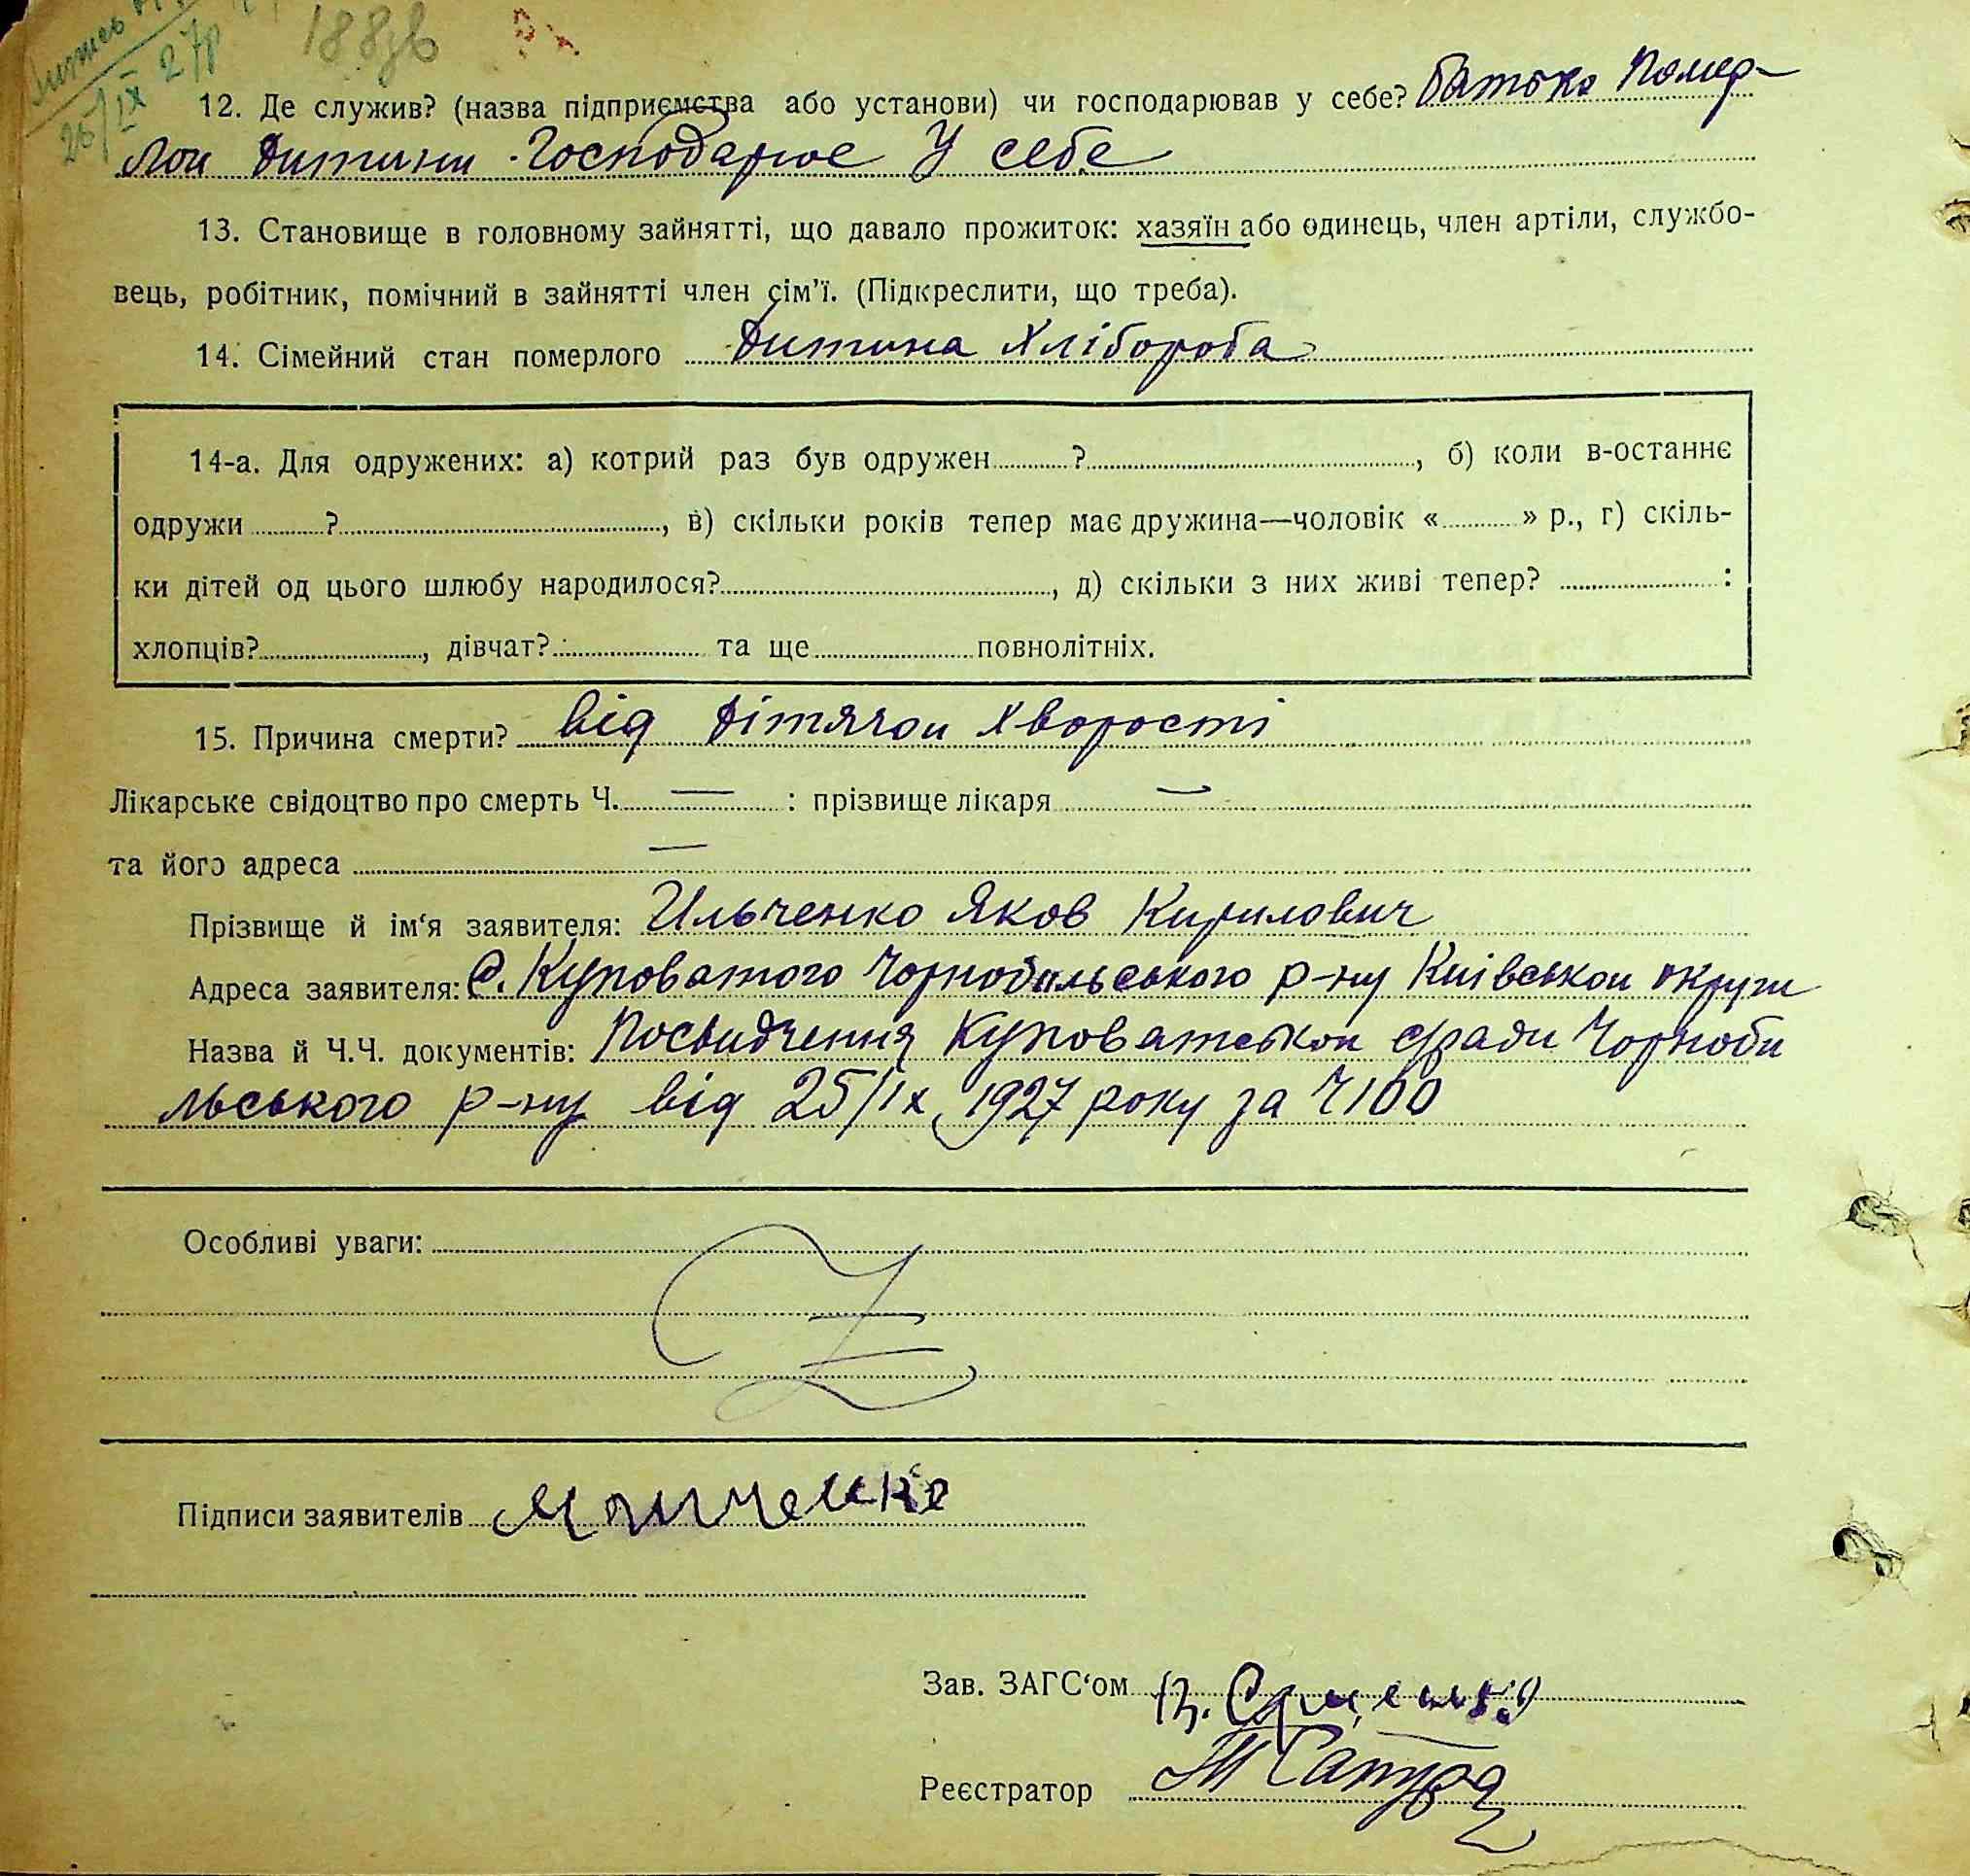 188зв
26/IX 27р
12. Де служив? (назва підприємства або установи) чи господарював у себе? батько помер-
лои дитини. Господарює У себе
13. Становище в головному зайнятті, що давало прожиток: хазяїн або одинець, член артіли, службо-
вець, робітник, помічний в зайнятті член сім'ї. (Підкреслити, що треба).
14. Сімейний стан померлого Дитина Хлібороба
14-а. Для одружених: а) котрий раз був одружен ? , б) коли в-останнє
одружи ? , в) скільки років тепер має дружина—чоловік « » р., г) скіль-
ки дітей од цього шлюбу народилося? , д) скільки з них живі тепер? :
хлопців? , дівчат? та ще повнолітніх.
15. Причина смерти? від дітячои хворості
Лікарське свідоцтво про смерть Ч. — : прізвище лікаря —
та його адреса —
Прізвище й ім'я заявителя: Ильченко Яков Кирилович
Адреса заявителя: с. Куповатого Чорнобильського р-ну Київськои округи
Назва й Ч.Ч. документів: Посвидчення Куповатськои с/ради Чорноби
льського р-ну від 25/IX 1927 року за Ч100
Особливі уваги:
Підписи заявителів
Зав. ЗАГС'ом
Реєстратор